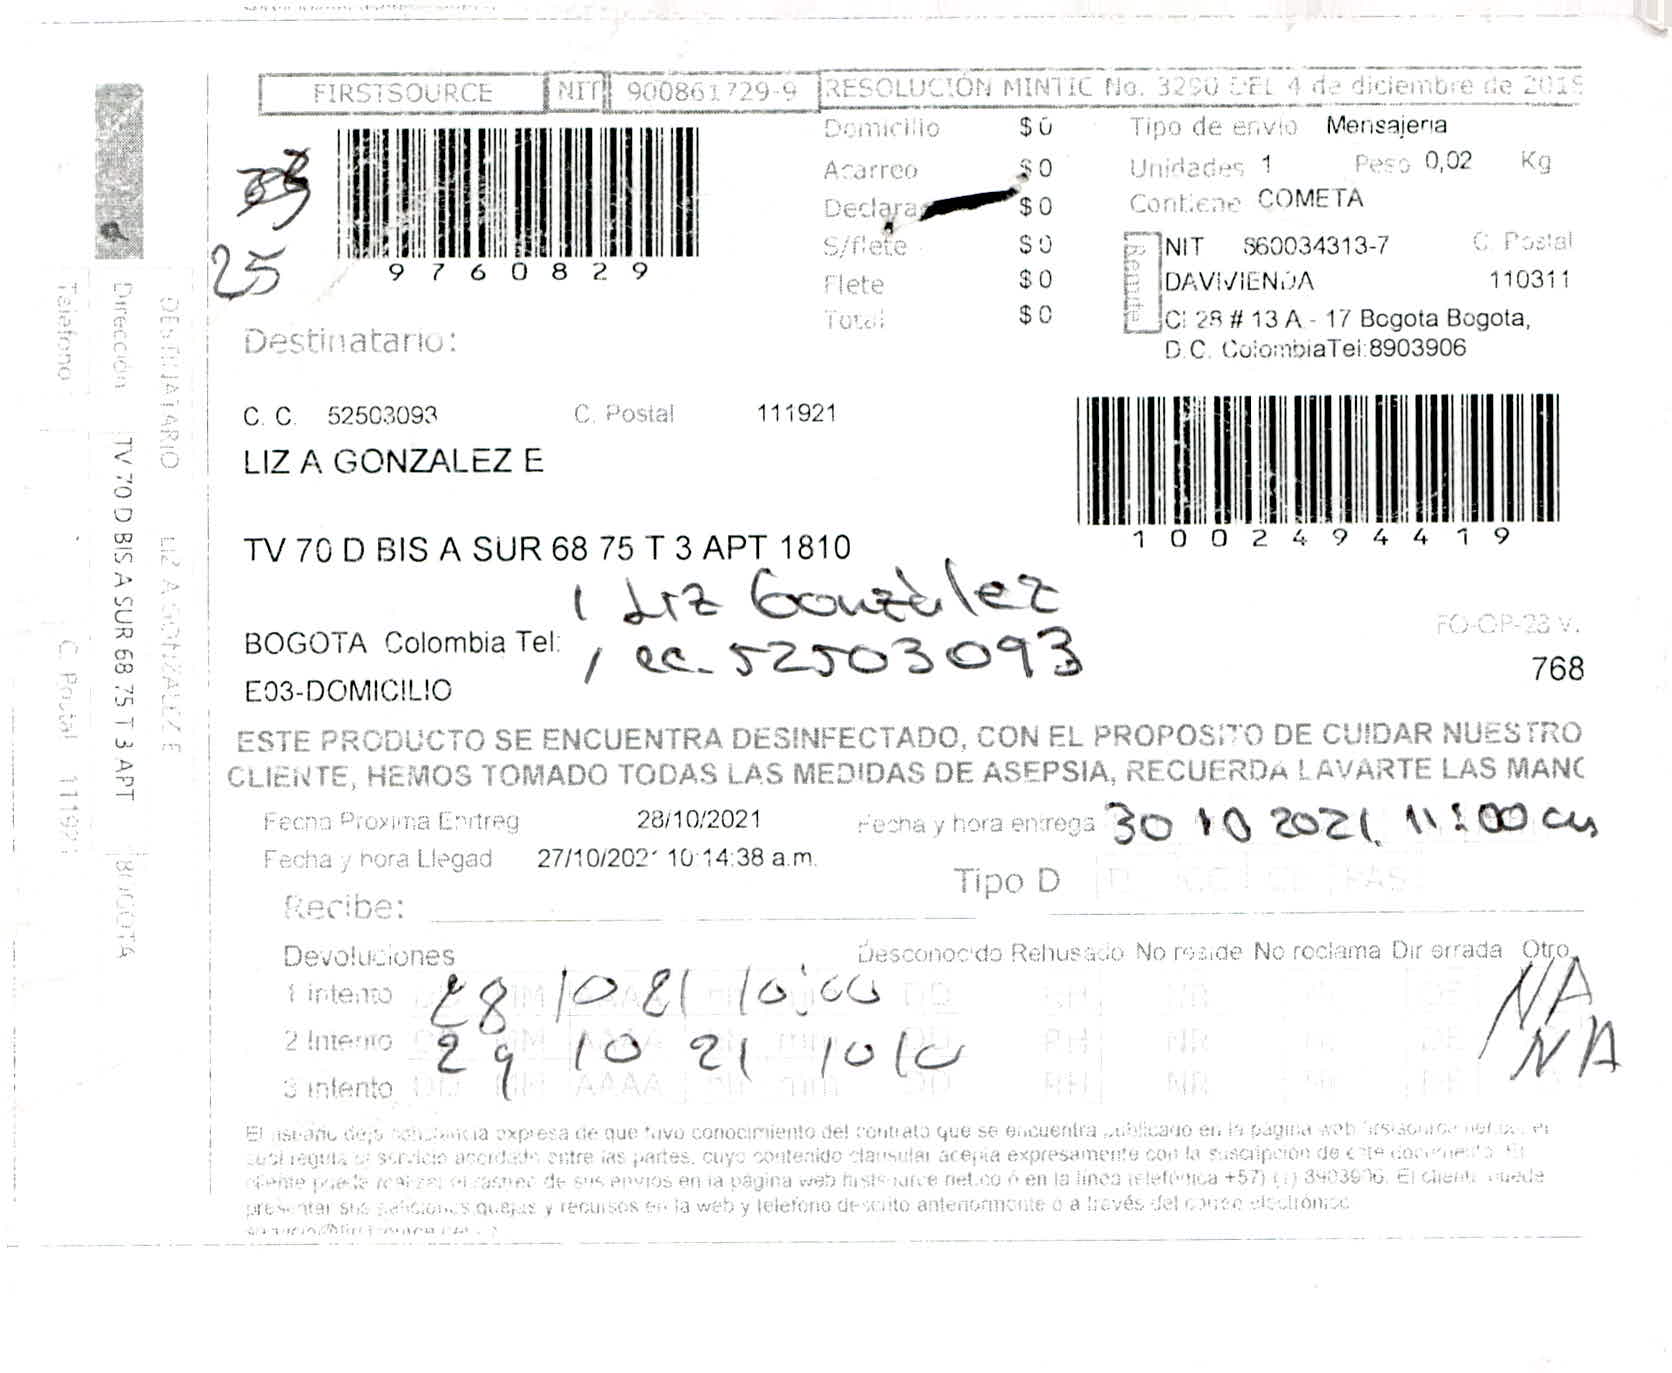 FIRSTSOURCE NIT 900861729-9 RESOLUCIÓN MINTIC No. 3290 DEL 4 de diciembre de 2019
Domicilio $0
Acarreo $0
Declara $0
S/flete $0
Flete $0
Total $0
Tipo de envío Mensajeria
Unidades 1 Peso 0,02 Kg
Contiene COMETA
Remite
NIT 860034313-7 C. Postal
DAVIVIENDA 110311
Cl 28 # 13 A - 17 Bogota Bogota,
D.C. ColombiaTel:8903906
9760829
25
Destinatario:
C. C. 52503093 C. Postal 111921
LIZ A GONZALEZ E
1002494419
TV 70 D BIS A SUR 68 75 T 3 APT 1810
Liz González
BOGOTA Colombia Tel:
cc. 52503093
E03-DOMICILIO
FO-OP-23 V.
768
ESTE PRODUCTO SE ENCUENTRA DESINFECTADO, CON EL PROPOSITO DE CUIDAR NUESTRO
CLIENTE, HEMOS TOMADO TODAS LAS MEDIDAS DE ASEPSIA, RECUERDA LAVARTE LAS MANO
Fecha Proxima Entreg 28/10/2021
Fecha y hora entrega 30 10 2021 11:00
Fecha y hora Llegad 27/10/2021 10:14:38 a.m.
Tipo D
Recibe:
Devoluciones Desconocido Rehusado No reside No reclama Dir errada Otro
1 intento 28 10 21 10:00 NA
2 Intento 29 10 21 1010 NA
3 intento DD MM AAAA
El usuario deja constancia expresa de que tuvo conocimiento del contrato que se encuentra publicado en la página web
cual regula el servicio acordado entre las partes, cuyo contenido clausular acepta expresamente con la suscripción de este documento. El
cliente puede realizar el rastreo de sus envios en la página web firstsource.net.co ó en la línea telefónica +57) (1) 8903906. El cliente puede
presentar sus peticiones quejas y recursos en la web y telefono descrito anteriormente o a través del correo electrónico
DESTINATARIO LIZ A GONZALEZ E
Dirección TV 70 D BIS A SUR 68 75 T 3 APT BOGOTA
Telefono C. Postal 111921